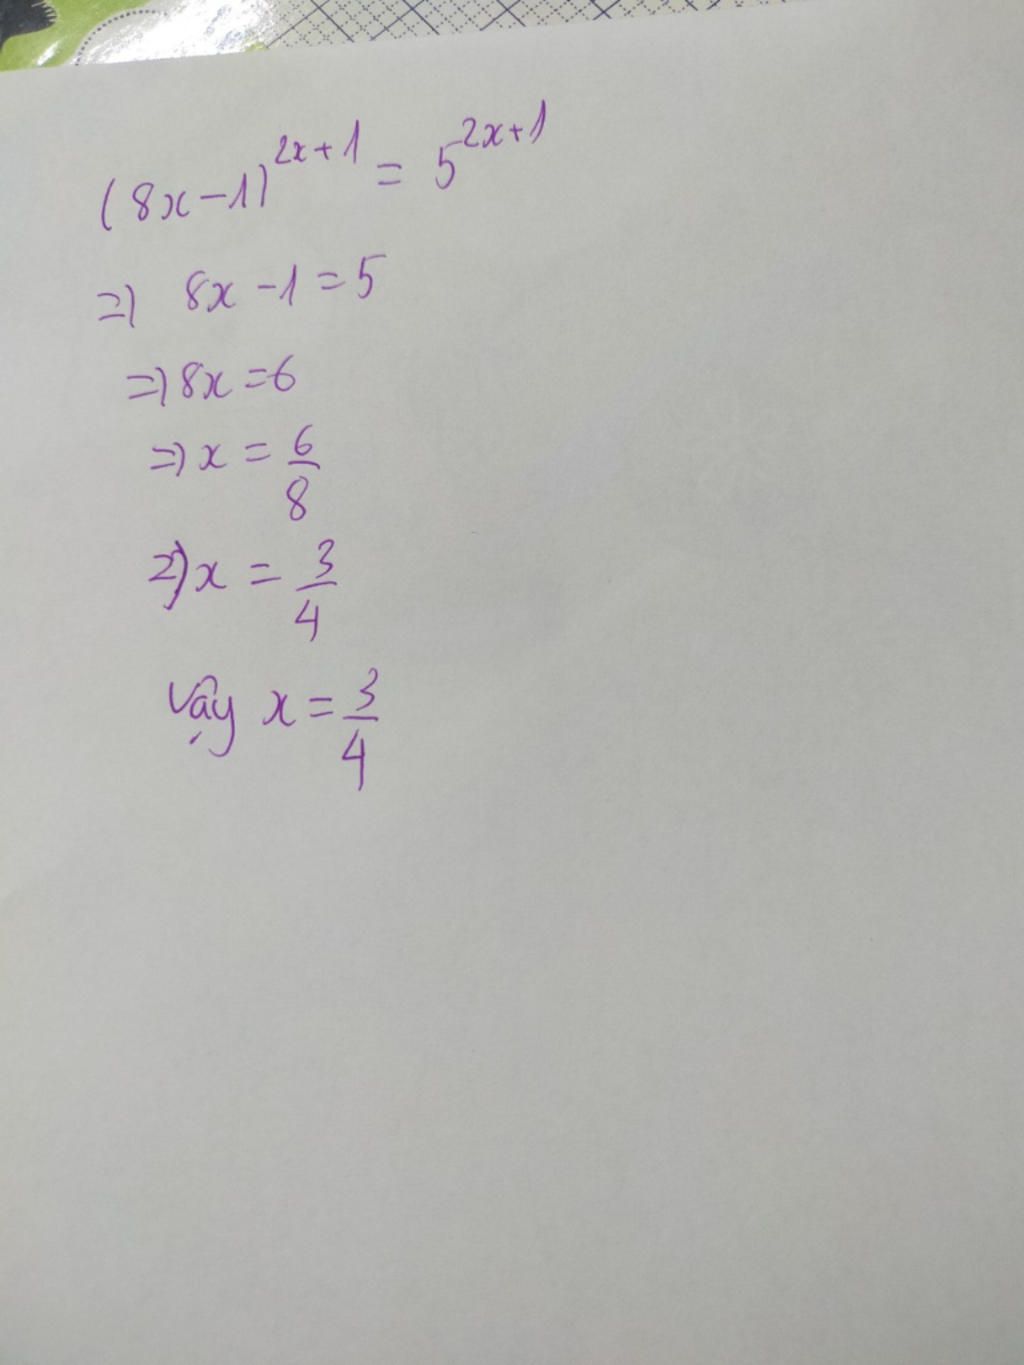 (8x-1)^{2x+1} = 5^{2x+1}
=> 8x - 1 = 5
=> 8x = 6
=> x = 6/8
=> x = 3/4
Vậy x = 3/4